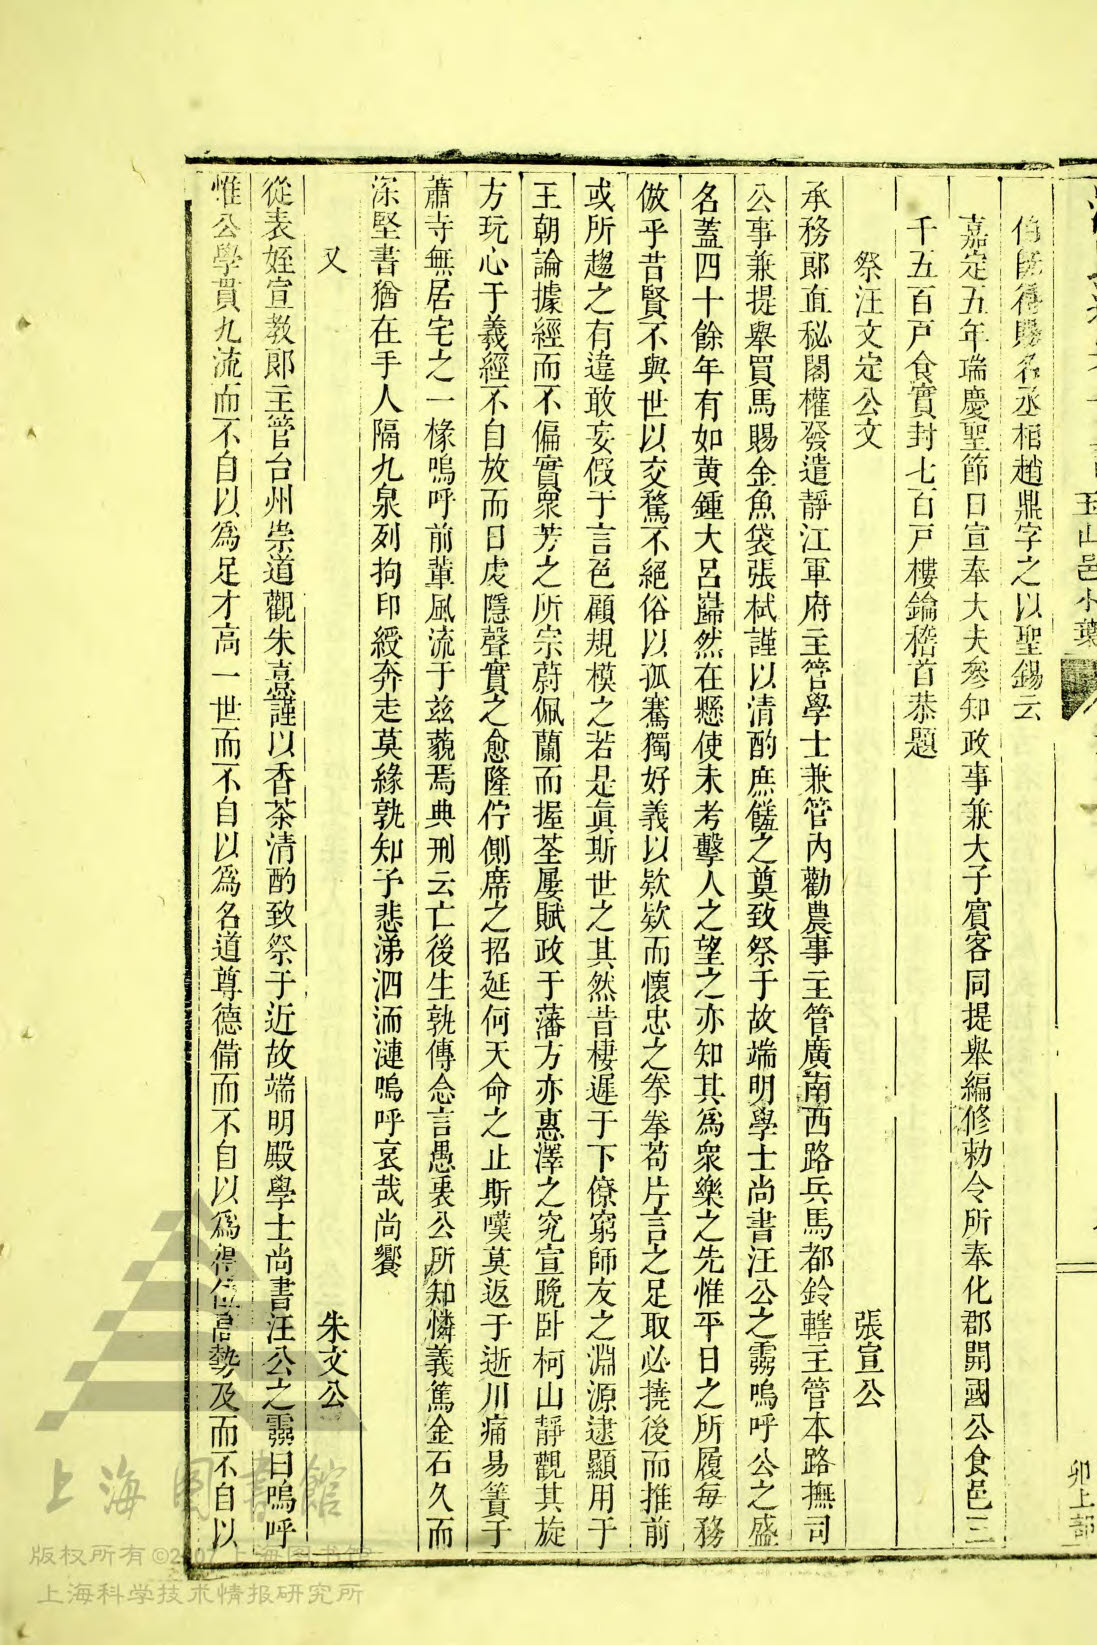 玉山邑外葉
卯上部
伯時得賜名丞相趙鼎字之以聖錫云
嘉定五年瑞慶聖節日宣奉大夫參知政事兼太子賓客同提舉編修勑令所奉化郡開國公食邑三
千五百戸食實封七百戸樓鑰稽首恭題
祭汪文定公文　張宣公
承務郎直秘閣權發遣靜江軍府主管學士兼管內勸農事主管廣南西路兵馬都鈐轄主管本路撫司
公事兼提舉買馬賜金魚袋張栻謹以清酌庶饈之奠致祭于故端明學士尚書汪公之靈嗚呼公之盛
名蓋四十餘年有如黄鍾大呂巋然在懸使未考擊人之望之亦知其爲衆樂之先惟平日之所履每務
倣乎昔賢不與世以交騖不絕俗以孤騫獨好義以欵欵而懷忠之拳拳苟片言之足取必撓後而推前
或所趨之有違敢妄假于言色顧規模之若是眞斯世之其然昔棲遲于下僚窮師友之淵源逮顯用于
王朝論據經而不偏實衆芳之所宗蔚佩蘭而握荃屢賦政于藩方亦惠澤之究宣晚卧柯山靜觀其旋
方玩心于羲經不自放而日虔隱聲實之愈隆佇側席之招延何天命之止斯嘆莫返于逝川痛易簀于
蕭寺無居宅之一椽嗚呼前輩風流于兹藐焉典刑云亡後生孰傳念言愚衷公所知憐義篤金石久而
深堅書猶在手人隔九泉列拘印綬奔走莫緣孰知予悲涕泗洏漣嗚呼哀哉尚饗
又　朱文公
從表姪宣教郎主管台州崇道觀朱熹謹以香茶清酌致祭于近故端明殿學士尚書汪公之靈曰嗚呼
惟公學貫九流而不自以爲足才高一世而不自以爲名道尊德備而不自以爲得位高勢及而不自以
上海图书馆
版权所有©2007上海图书馆
上海科学技术情报研究所